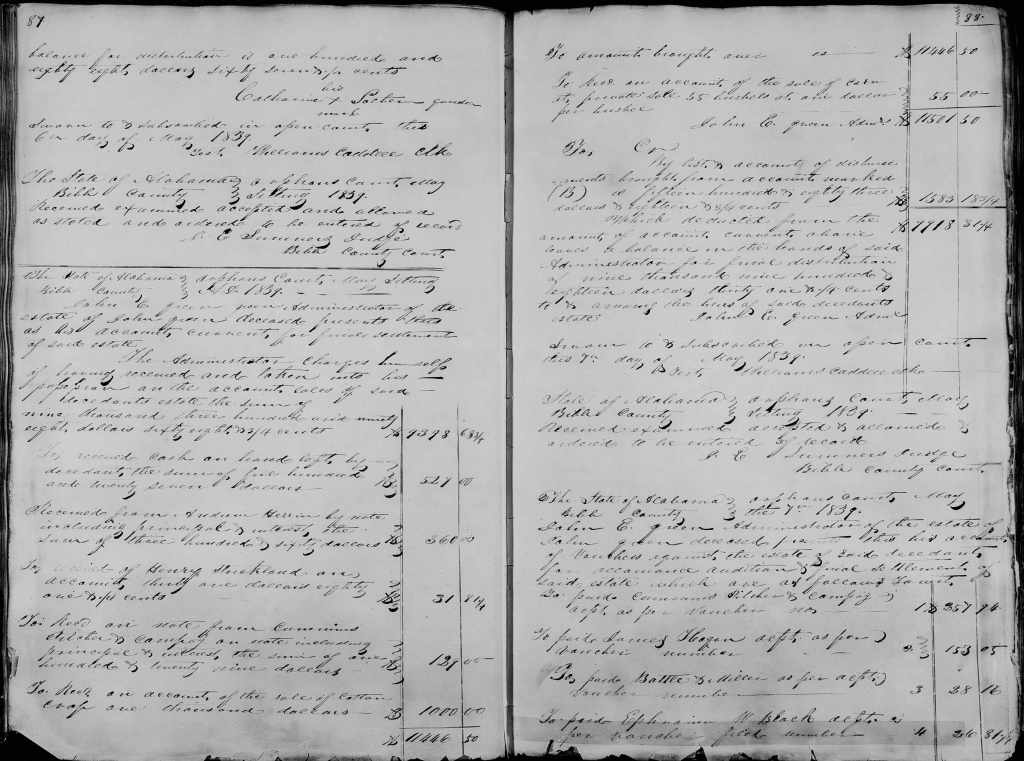 87
balance for distribution is one hundred and
eighty eight dollars sixty seven & 3/4 cents
his
Catharine x guardian
mark
Sworn to & subscribed in open court this
6th day of May 1839
Test. Williams Caddell Clk
The State of Alabama } orphans Court May
Bibb County } Sitting 1839.
Received examined accepted and allowed
as stated and ordered to be entered of record
J. E. Summers Judge
Bibb County Court
The State of Alabama } orphans Court May Sitting
Bibb County } A.D. 1839
John E. Administrator of the
estate of John deceased presents this
as his account current, for final settlement
of said estate
The Administrator Charges himself
of having received and taken into his
possession on the account sales of said
decedents estate the sum of
nine thousand three hundred and ninety
eight dollars sixty eight & 3/4 cents $ 9398 68 3/4
To received cash on hand left by
decedant the sum of five hundred
and twenty seven dollars $ 527 00
Received from Herrin by note
including principal & interest the
sum of three hundred & sixty dollars $ 360 00
To of Henry Strickland on
account thirty one dollars eighty
one & 1/4 cents $ 31 81 1/4
To Recd on note from Cummins
Pilcher & Company on note including
principal & interest the sum of one
hundred & twenty nine dollars $ 129 00
To Recd on account of the sale of Cotton
crop one thousand dollars $ 1000 00
$ 11446 50
88
To amount brought over is $ 11446 50
To Recd on account of the sale of corn
at private sale 55 bushels at one dollar
per bushel 55 00
John E. Admr $ 11501 50
By list & account of disburse
ments brought from account marked
(B) of fifteen hundred & eighty three
dollars & eighteen & 3/4 cents $ 1583 18 3/4
Which deducted from the $ 9918 31 1/4
amount of account current above
leaves a balance in the hands of said
Administrator for final distribution
of nine thousand nine hundred &
eighteen dollars thirty one & 1/4 cents
to & among the heirs of said decedants
estate John E. Admr
Sworn to & subscribed in open court
this 7th day of May 1839.
Test. Williams Caddell clk
State of Alabama } orphans Court May
Bibb County } Sitting 1839.
Received examined accepted & allowed &
ordered to be entered of record
J. E. Summers Judge
Bibb County Court
The State of Alabama } orphans Court May
Bibb County } the 7th 1839.
John E. Administrator of the estate of
John deceased this his account
of Vouchers against the estate of said decedant
for allowance audition & final settlement of
said estate which are as follows to wit,
To paid Cummins Pilcher & Company
acpt. as per voucher no 1 $ 357 94
To paid James Hogan acpt. as per }
voucher number 2 153 05
To paid Battle & Miller as per acpt. }
voucher number 3 28 16
To paid Ephraim W. Black acpt.
per voucher filed number 4 26 81 1/4